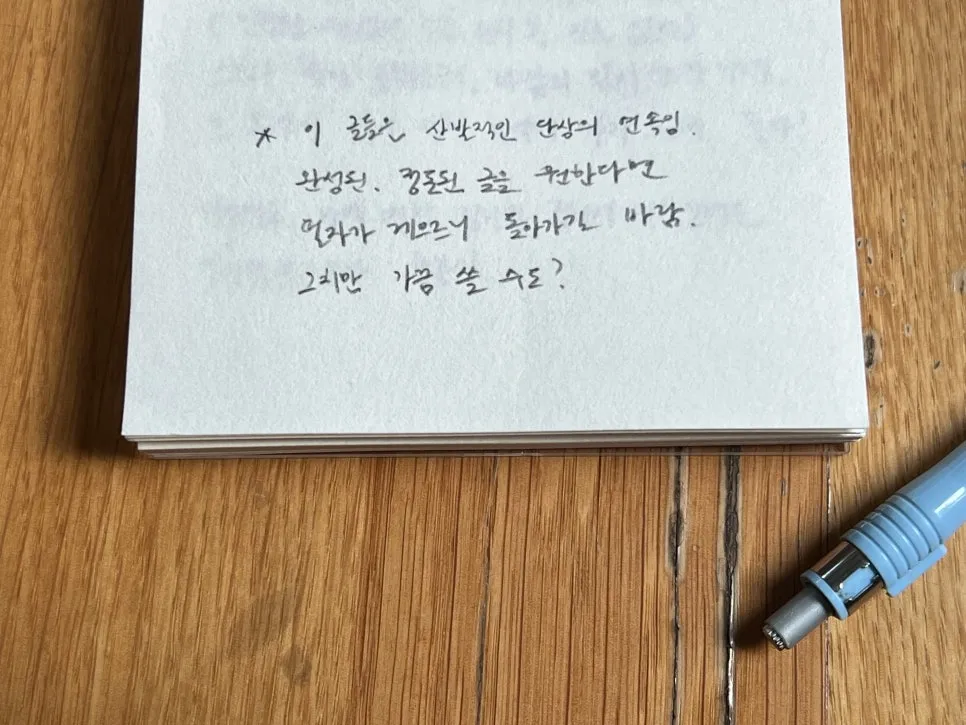 * 이 글들은 산발적인 단상의 연속임.
완성된, 정돈된 글을 원한다면
필자가 게으르니 돌아가길 바람.
그치만 가끔 쓸 수도?